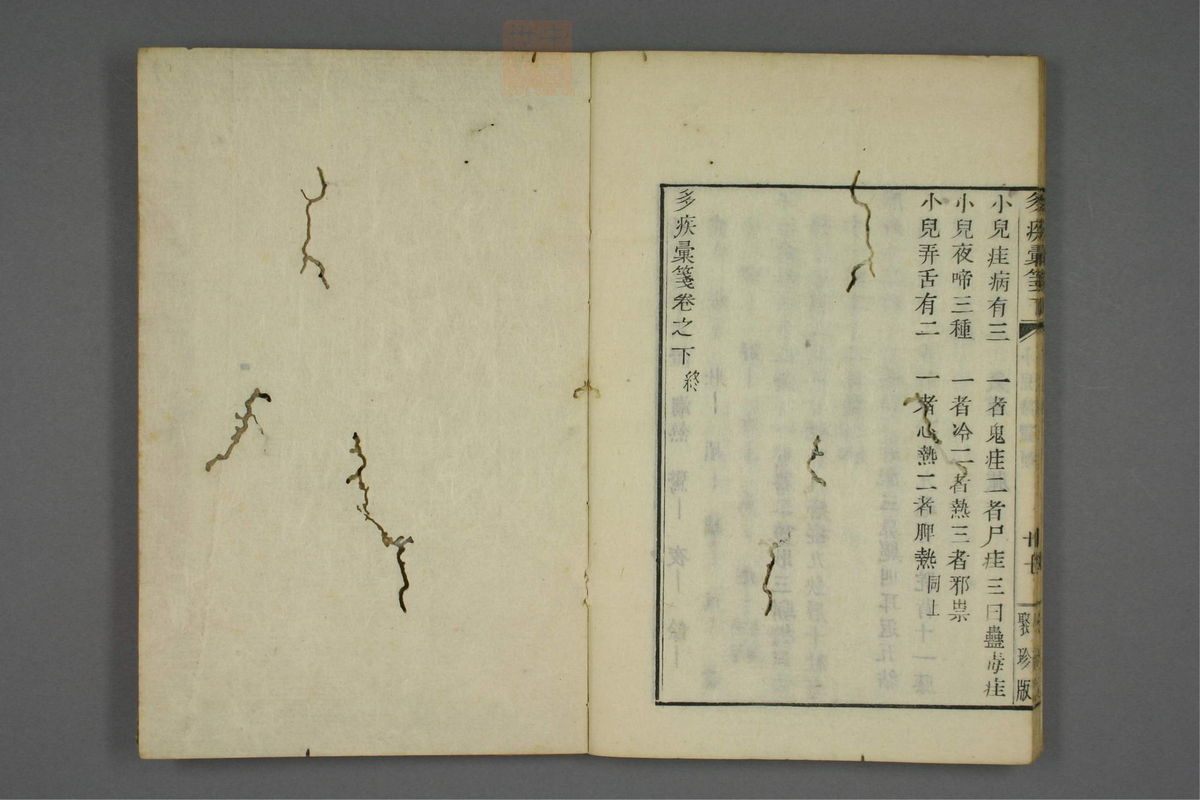 小兒疰病有三　一者鬼疰二者尸疰三曰蠱毒疰
小兒夜啼三種　一者冷二者熱三者邪祟
小兒弄舌有二　一者心熱二者脾熱同上
多疾彙箋卷之下終
多疾彙箋　下
聚珍版